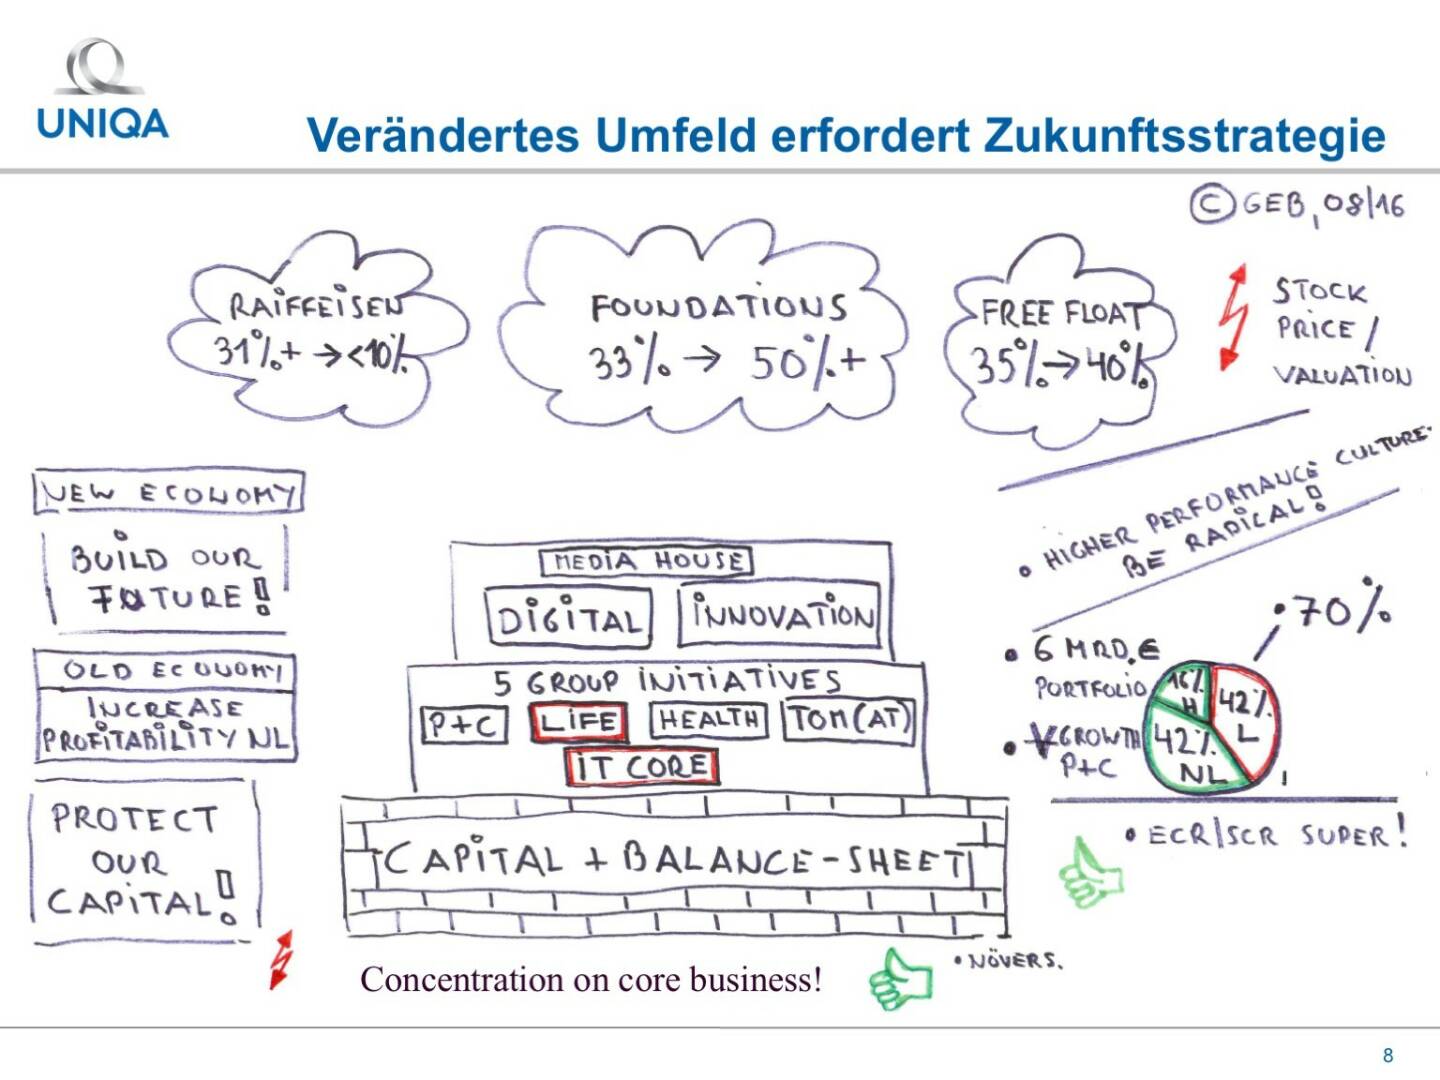 UNIQA
Verändertes Umfeld erfordert Zukunftsstrategie
© GEB, 08/16
RAIFFEISEN
31%+ → <10%
FOUNDATIONS
33% → 50%+
FREE FLOAT
35% → 40%
STOCK
PRICE /
VALUATION
NEW ECONOMY
BUILD OUR
FUTURE!
OLD ECONOMY
INCREASE
PROFITABILITY NL
PROTECT
OUR
CAPITAL!
MEDIA HOUSE
DIGITAL
INNOVATION
5 GROUP INITIATIVES
P+C
LIFE
HEALTH
TOM(AT)
IT CORE
CAPITAL + BALANCE-SHEET
Concentration on core business!
• NÖVERS.
• HIGHER PERFORMANCE CULTURE
BE RADICAL!
• 70%
• 6 MRD. €
PORTFOLIO
• GROWTH
P+C
16%
H
42%
L
42%
NL
• ECR/SCR SUPER!
8